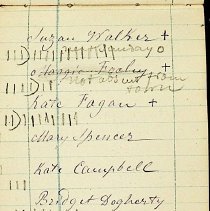 Suzan Walker +
Maggie Fooley
not absent from
town
Kate Fagan +
Mary Spencer
Kate Campbell
Bridget Dogherty